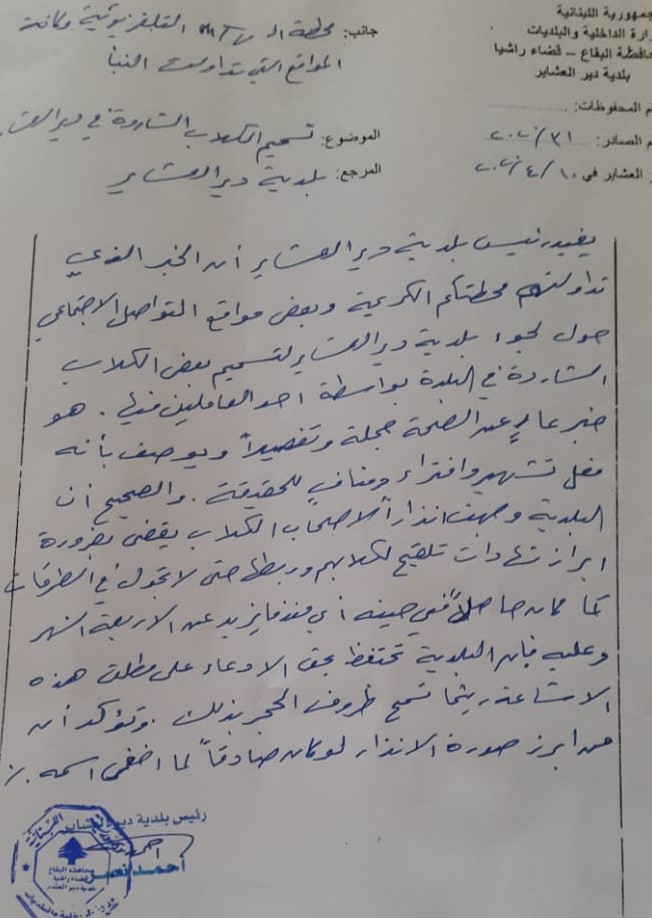 جمهورية اللبنانية
زارة الداخلية والبلديات
حافظة البقاع – قضاء راشيا
بلدية دير العشاير
م المحفوظات:
م الصادر: ٣١/٢٠٢٠
العشاير في ١٠/٤/٢٠٢٠
جانب: محطة ال mTv التلفزيونية وكافة
المواقع التي تداولت النبأ
الموضوع: تسميم الكلاب الشاردة في دير العشاير
المرجع: بلدية دير العشاير
يفيد رئيس بلدية دير العشاير أن الخبر الذي
تداولته محطتكم الكريمة وبعض مواقع التواصل الاجتماعي
حول لجوء بلدية دير العشاير لتسميم بعض الكلاب
الشاردة في البلدة بواسطة احد العاملين فيها. هو
خبر عارٍ عن الصحة جملة وتفصيلاً ويوصف بأنه
فعل تشهير وافتراء ومنافٍ للحقيقة. والصحيح أن
البلدية وجهت انذاراً لاصحاب الكلاب يقضي بضرورة
ابراز شهادات تلقيح لكلابهم وربطها حتى لا تتجول في الطرقات
كما كان حاصلاً في حينه أي منذ ما يزيد عن الاربعة اشهر
وعليه فإن البلدية تحتفظ بحق الادعاء على مطلق هذه
الاشاعة ريثما تسمح ظروف الحجر بذلك. وتؤكد أن
من ابرز صورة الانذار لو كان صادقاً لما اخفى اسمه
رئيس بلدية دير العشاير
أحمد نصر
محافظة البقاع
قضاء راشيا
بلدية دير العشاير